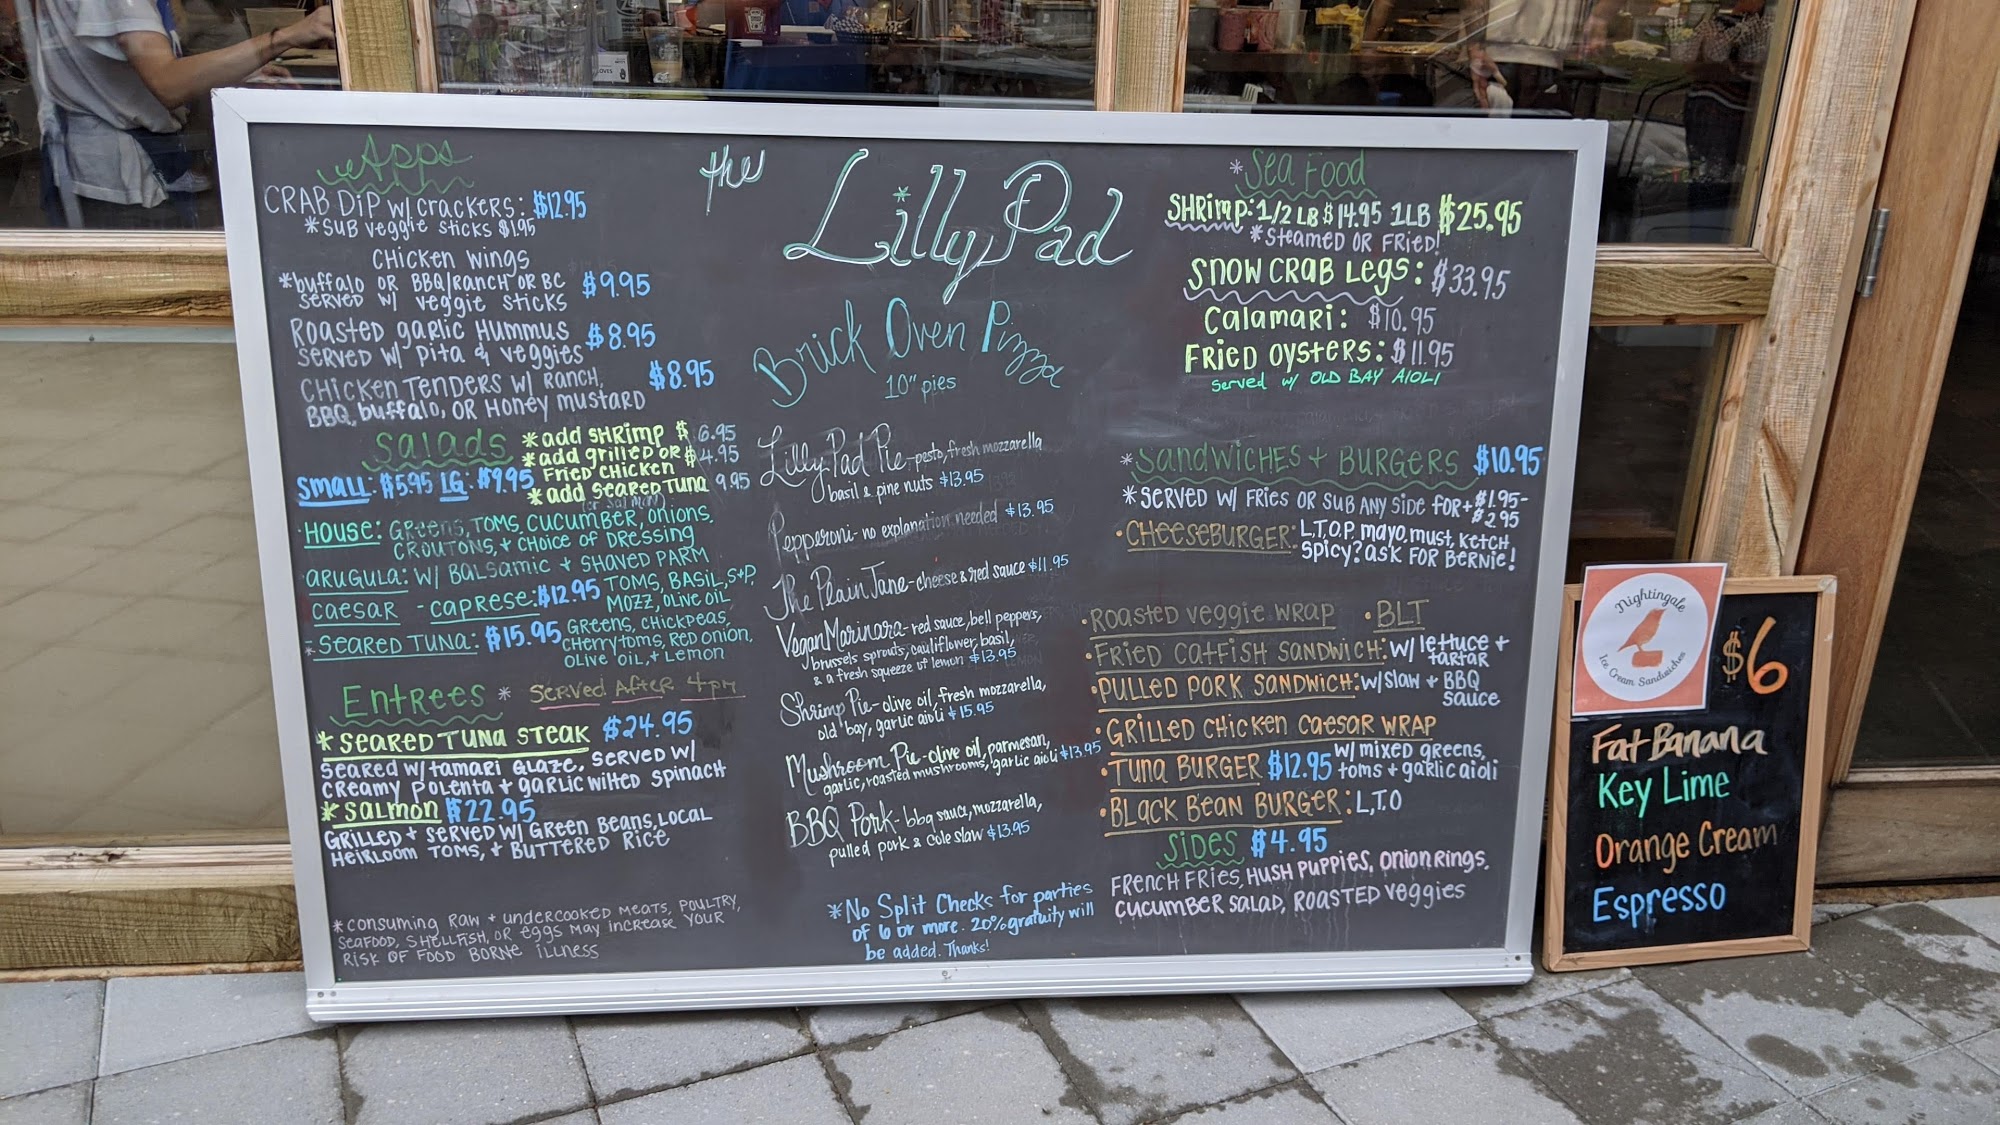 Apps
CRAB DIP W/ CRACKERS: $12.95
*SUB VEGGIE STICKS $1.95
CHICKEN WINGS
*buffalo OR BBQ/RANCH OR BC $9.95
SERVED W/ VEGGIE STICKS
ROASTED GARLIC HUMMUS $8.95
SERVED W/ PITA & VEGGIES
CHICKEN TENDERS W/ RANCH, $8.95
BBQ, buffalo, OR HONEY MUSTARD
SALADS
*add SHRIMP $6.95
*add grilled OR $4.95
FRIED CHICKEN
*add SEARED TUNA 9.95
SMALL: $5.95 LG: $9.95
HOUSE: GREENS, TOMS, CUCUMBER, ONIONS,
CROUTONS, + CHOICE OF DRESSING
ARUGULA: W/ BALSAMIC + SHAVED PARM
CAESAR - CAPRESE: $12.95 TOMS, BASIL, S+P,
MOZZ, OLIVE OIL
*SEARED TUNA: $15.95 GREENS, CHICKPEAS,
CHERRY TOMS, RED ONION,
OLIVE OIL, + LEMON
ENTREES * SERVED AFTER 4pm
*SEARED TUNA STEAK $24.95
SEARED W/ TAMARI GLAZE. SERVED W/
CREAMY POLENTA + GARLIC WILTED SPINACH
*SALMON $22.95
GRILLED + SERVED W/ GREEN BEANS, LOCAL
HEIRLOOM TOMS, + BUTTERED RICE
*CONSUMING RAW + UNDERCOOKED MEATS, POULTRY,
SEAFOOD, SHELLFISH, OR EGGS MAY INCREASE YOUR
RISK OF FOOD BORNE ILLNESS
the Lilly Pad
Brick Oven Pizza
10" pies
Lilly Pad Pie - pesto, fresh mozzarella
basil & pine nuts $13.95
Pepperoni - no explanation needed $13.95
The Plain Jane - cheese & red sauce $11.95
Vegan Marinara - red sauce, bell peppers,
brussels sprouts, cauliflower, basil,
& a fresh squeeze of lemon $13.95
Shrimp Pie - olive oil, fresh mozzarella,
old bay, garlic aioli $15.95
Mushroom Pie - olive oil, parmesan,
garlic, roasted mushrooms, garlic aioli $13.95
BBQ Pork - bbq sauce, mozzarella,
pulled pork & cole slaw $13.95
*No Split Checks for parties
of 6 or more. 20% gratuity will
be added. Thanks!
*Sea Food
SHRIMP: 1/2 LB $14.95 1LB $25.95
*STEAMED OR FRIED!
SNOW CRAB LEGS: $33.95
CALAMARI: $10.95
FRIED OYSTERS: $11.95
Served w/ OLD BAY AIOLI
*SANDWICHES + BURGERS $10.95
*SERVED W/ FRIES OR SUB ANY SIDE FOR + $1.95-
$2.95
•CHEESEBURGER: L,T,O,P, mayo, must, KETCH
SPICY? ASK FOR BERNIE!
•ROASTED VEGGIE WRAP •BLT
•FRIED CATFISH SANDWICH: W/ LETTUCE +
TARTAR
•PULLED PORK SANDWICH: W/ SLAW + BBQ
SAUCE
•GRILLED CHICKEN CAESAR WRAP
•TUNA BURGER $12.95 W/ MIXED GREENS,
TOMS + GARLIC AIOLI
•BLACK BEAN BURGER: L,T,O
SIDES $4.95
FRENCH FRIES, HUSH PUPPIES, ONION RINGS,
CUCUMBER SALAD, ROASTED VEGGIES
Nightingale
Ice Cream Sandwiches
$6
Fat Banana
Key Lime
Orange Cream
Espresso